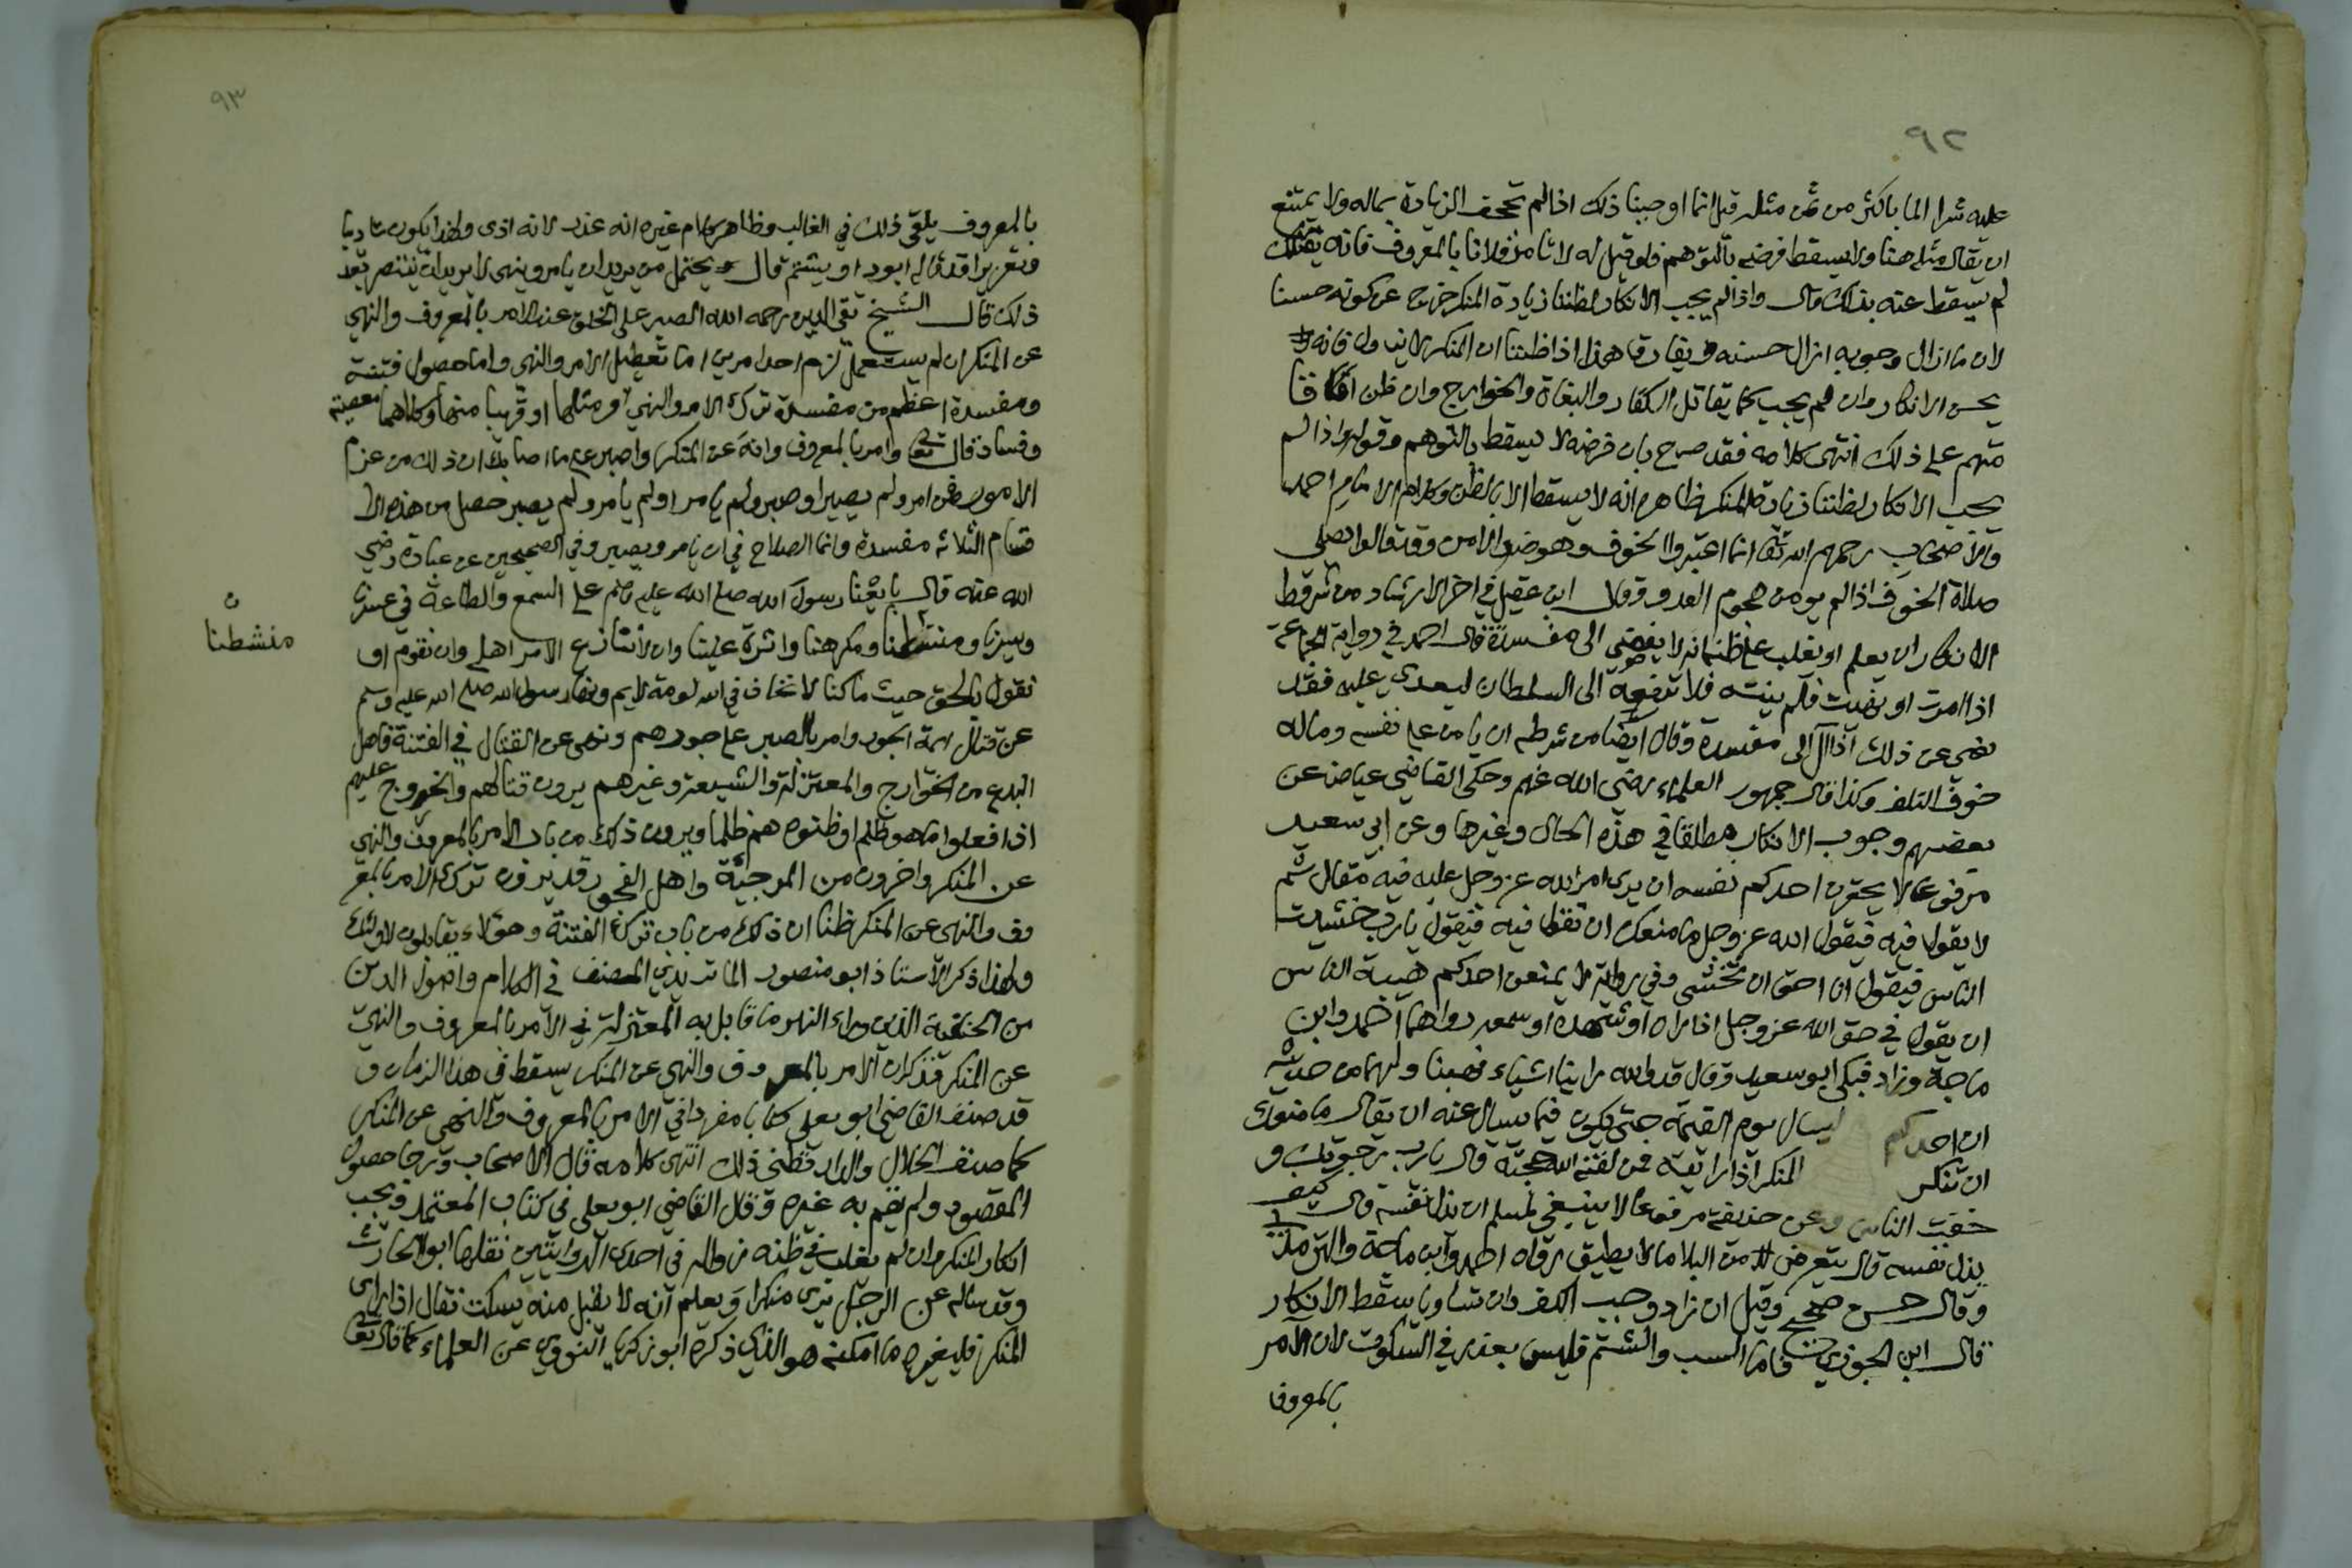 ٩٢
عليه شرا الما باكثر من ثمن مثله قيل انما اوجبنا ذلك اذا لم تجحف الزيادة بماله ولا يمتنع
ان يقال مثله هنا ولا يسقط فرضه بالتوهم فلو قيل له لا تامر فلانا بالمعروف فانه يقتلك
لم يسقط عنه بذلك قال واذا لم يجب الانكار لظننا زيادة المنكر خرج عن كونه حسنا
لان ما ازال وجوبه ازال حسنه ويفارق هذا اذا ظننا ان المنكر لا يزول فانه
يحسن الانكار وان لم يجب كما يقاتل الكفار والبغاة والخوارج وان ظن
منهم على ذلك انتهى كلامه فقد صرح بان فرضه لا يسقط بالتوهم وقوله اذا لم
يجب الانكار لظننا زيادة المنكر ظاهر انه لا يسقط الا بالظن وكلام الامام احمد
والاصحاب رحمهم الله تعا انما اعتبروا الخوف وهو ضد الامن وقد قالوا يصلي
صلاة الخوف اذا لم يومن هجوم العدو وقال ابن عقيل في اخر الارشاد من شرط
الانكار ان يعلم او يغلب على ظنه انه لا يفضي الى مفسدة قال احمد في رواية الجماعة
اذا امرت او نهيت فلم ينته فلا ترفعه الى السلطان ليعدى عليه فقد
نهى عن ذلك اذا آل الى مفسدة وقال ايضا من شرطه ان يامن على نفسه وماله
خوف التلف وكذا قال جمهور العلماء رضى الله عنهم وحكى القاضي عياض عن
بعضهم وجوب الانكار مطلقا في هذه الحال وغيرها وعن ابي سعيد
مرفوعا لا يحقرن احدكم نفسه ان يرى امر الله عز وجل عليه فيه مقال ثم
لا يقول فيه فيقول الله عز وجل ما منعك ان تقول فيه فيقول يا رب خشيت
الناس فيقول انا احق ان تخشى وفي رواية لا يمنعن احدكم هيبة الناس
ان يقول في حق الله عز وجل اذا راه او شهده او سمعه رواهما احمد وابن
ماجة وزاد فبكى ابو سعيد وقال قد والله راينا اشياء فهبنا ولهما من حديثه
ان احدكم ليسال يوم القيمة حتى يكون فيما يسال عنه ان يقال ما منعك
ان تنكر المنكر اذا رايته فمن لقنه الله حجته قال يا رب رجوتك و
خفت الناس وعن حذيفة مرفوعا لا ينبغي لمسلم ان يذل نفسه قال كيف
يذل نفسه قال يتعرض من البلا ما لا يطيق رواه احمد وابن ماجة والترمذي
وقال حسن صحيح وقيل ان زاد وجب الكف وان تساويا سقط الانكار
قال ابن الجوزي فاما السب والشتم فليس بعذر في السكوت لان الامر
بالمعروف
٩٣
بالمعروف يلقى ذلك في الغالب وظاهر كلام غيره انه عذر لانه اذى ولهذا يكون تاديبا
وتعزيرا قد قال له ابود او يشتم قال يحتمل من يريد ان يامر وينهى لا يريد ان ينتصر بعد
ذلك قال الشيخ تقي الدين رحمه الله الصبر على الخلق عند الامر بالمعروف والنهي
عن المنكر ان لم يستعمل لزم احد امرين اما تعطيل الامر والنهي واما حصول فتنة
ومفسدة اعظم من مفسدة ترك الامر والنهي او مثلها او قريبا منها وكلاهما معصية
وفساد قال تعا وامر بالمعروف وانه عن المنكر واصبر على ما اصابك ان ذلك من عزم
الامور فمن امر ولم يصبر او صبر ولم يامر او لم يامر ولم يصبر حصل من هذه الا
قسام الثلاثه مفسدة وانما الصلاح في ان يامر ويصبر وفي الصحيحين عن عبادة رضي
الله عنه قال بايعنا رسول الله صلى الله عليه وسلم على السمع والطاعة في عسرنا
ويسرنا ومنشطنا ومكرهنا واثرة علينا وان لا ننازع الامر اهله وان نقوم او
ن
منشطنا
نقول بالحق حيث ما كنا لا نخاف في الله لومة لايم ونها رسول الله صلى الله عليه وسلم
عن قتال ايمة الجور وامر بالصبر على جورهم ونهى عن القتال في الفتنة فاهل
البدع من الخوارج والمعتزلة والشيعة وغيرهم يرون قتالهم والخروج عليهم
اذا فعلوا ما هو ظلم او ظنوه هم ظلما ويرون ذلك من باب الامر بالمعروف والنهي
عن المنكر واخرون من المرجية واهل الفجور قد يرون ترك الامر بالمعر
وف والنهي عن المنكر ظنا ان ذلك من باب ترك الفتنة وهؤلاء يقابلون لاولئك
ولهذا ذكر الاستاذ ابو منصور الماتريدي المصنف في الكلام واصول الدين
من الحنفية الذين وراء النهر ما قابل به المعتزلة في الامر بالمعروف والنهي
عن المنكر فذكر ان الامر بالمعروف والنهي عن المنكر يسقط في هذا الزمان و
قد صنف القاضي ابو يعلى كتابا مفردا في الامر بالمعروف والنهي عن المنكر
كما صنف الخلال والدارقطني ذلك انتهى كلامه قال الاصحاب ورجا حصول
المقصود ولم يقم به غيره وقال القاضي ابو يعلى في كتاب المعتمد ويجب
انكار المنكر وان لم يغلب في ظنه زواله في احدى الروايتين نقلها ابو الحارث
وقد ساله عن الرجل يرى منكرا ويعلم انه لا يقبل منه يسكت فقال اذا راى
المنكر فليغيره ما امكنه هو الذي ذكره ابو زكريا النووي عن العلماء كما قال تعا